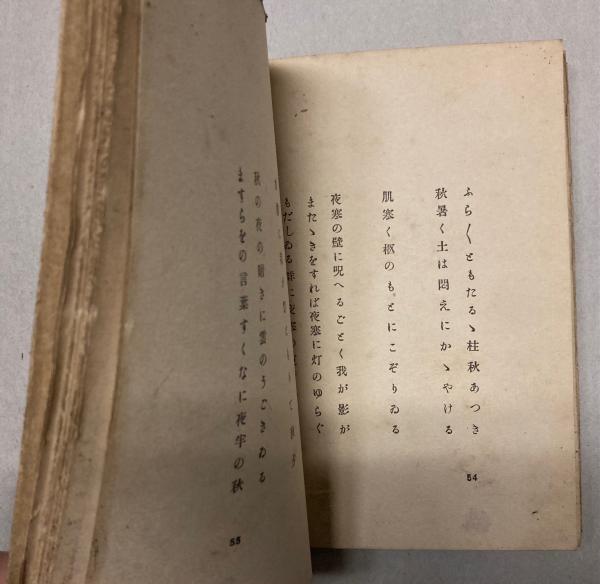 ふら〳〵ともたるゝ柱秋あつき
秋暑く土は悶えにかゝやける
肌寒く柩のもとにこぞりゐる
夜寒の壁に呪へるごとく我が影が
またゝきをすれば夜寒に灯のゆらぐ
もだしゐる
54
秋の夜の暗きに雲のうごきゐる
ますらをの言葉すくなに夜牢の秋
55